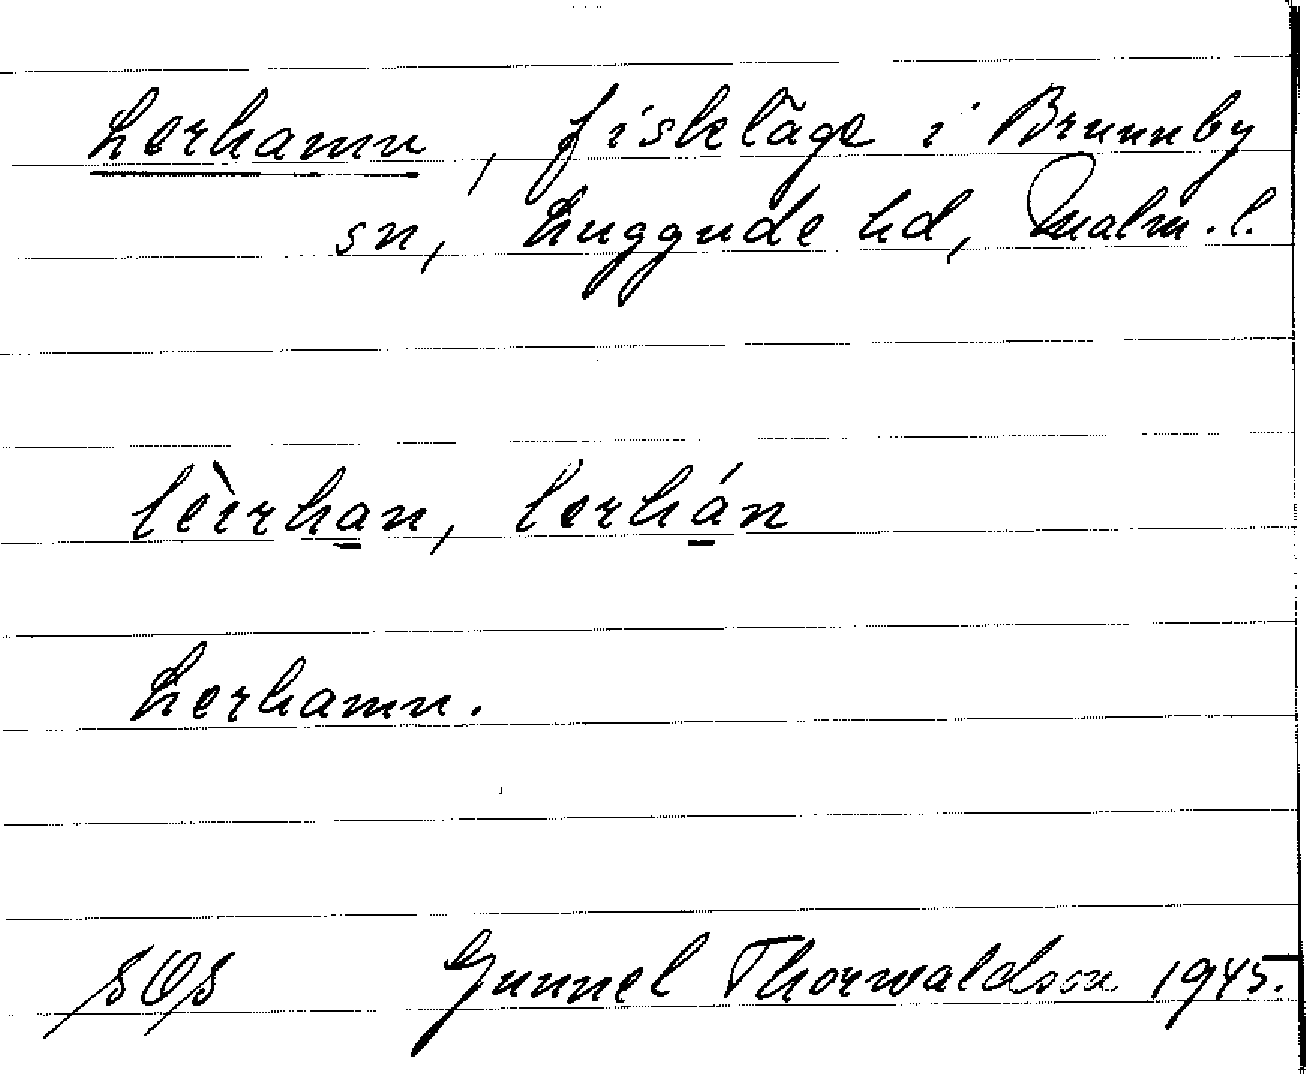 Lerhamn, fiskläge i Brunnby
sn, Luggude hd, Malm. l.
lèirhan, lerhán
Lerhamn.
SOS Gunnel Thorwaldson 1945.